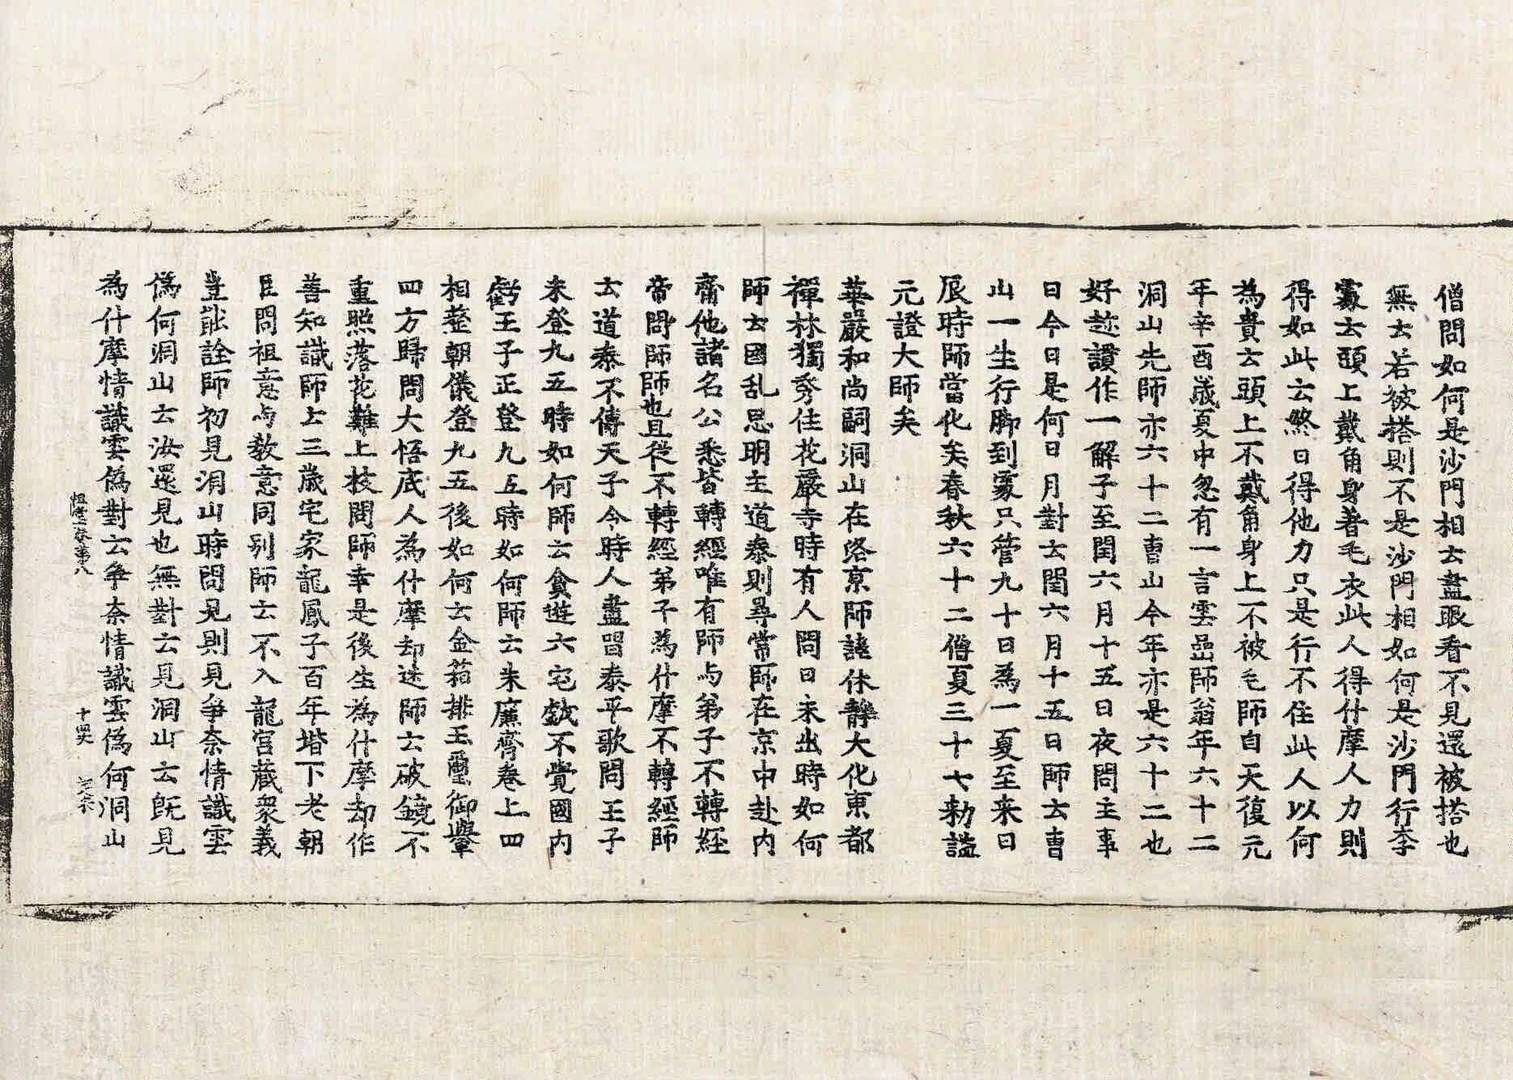 僧問如何是沙門相士盡眼看不見還被搭也
無士若被搭則不是沙門相如何是沙門行李
處士頭上戴角身著毛衣此人得什摩人力則
得如此士煞日得他力只是行不住此人以何
為貴士頭上不戴角身上不被毛師自天復元
年辛酉歲夏中忽有一言雲嵒師翁年六十二
洞山先師亦六十二曺山今年亦是六十二也
好趂讚作一解子至閏六月十五日夜問主事
日今日是何日月對士閏六月十五日師士曺
山一生行脚到處只管九十日為一夏至来日
辰時師當化矣春秋六十二僧夏三十七勑謚
元證大師矣
華嚴和尚嗣洞山在洛京師諱休靜大化東都
禪林獨秀住花嚴寺時有人問日未出時如何
師士國乱思明主道泰則尋常師在京中赴内
齋他諸名公悉皆轉經唯有師与弟子不轉經
帝問師師也且從不轉經弟子為什摩不轉經師
士道泰不傳天子令時人盡唱泰平歌問王子
未登九五時如何師士貪遊六宅戱不覺國内
虧王子正登九五時如何師士朱廉齊卷上四
相整朝儀登九五後如何士金箱排玉璽御輦
四方歸問大悟底人為什摩却迷師士破鏡不
重照落花難上枝問師幸是後生為什摩却作
善知識師士三歲宅家龍鳳子百年堦下老朝
臣問祖意与教意同别師士不入龍宫藏衆義
豈能詮師初見洞山時問見則見爭奈情識雲
為何洞山士汝還見也無對士見洞山士既見
為什摩情識雲為對士爭奈情識雲為何洞山
祖堂卷第八 十四丈